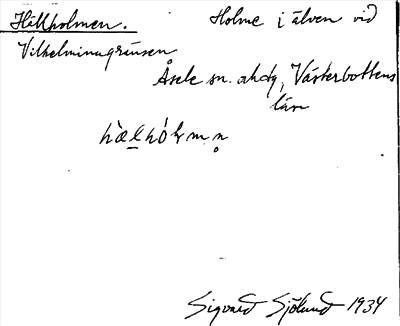 Hällholmen. Holme i älven vid
Vilhelminagränsen
Åsele sn. o hdg, Västerbottens
län
hæ̀lhól̥mn̥
Sigvard Sjölund 1934